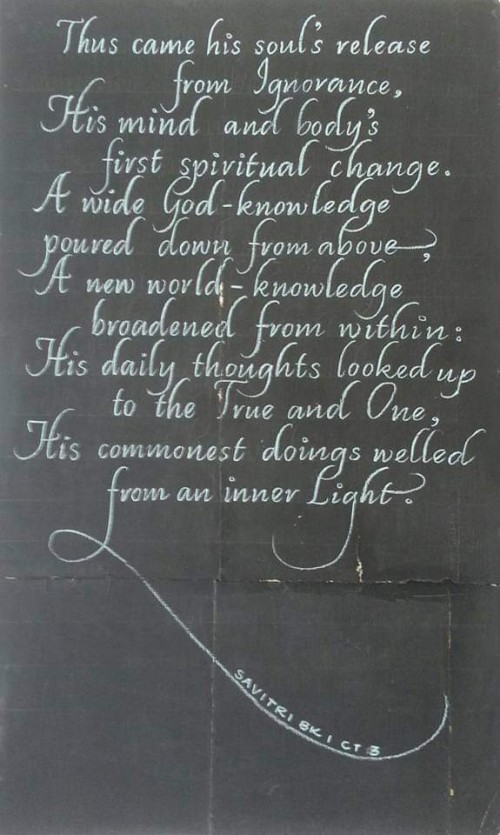 Thus came his soul's release
from Ignorance,
His mind and body's
first spiritual change.
A wide God-knowledge
poured down from above,
A new world-knowledge
broadened from within:
His daily thoughts looked up
to the True and One,
His commonest doings welled
from an inner Light.
SAVITRI BK I CT 3